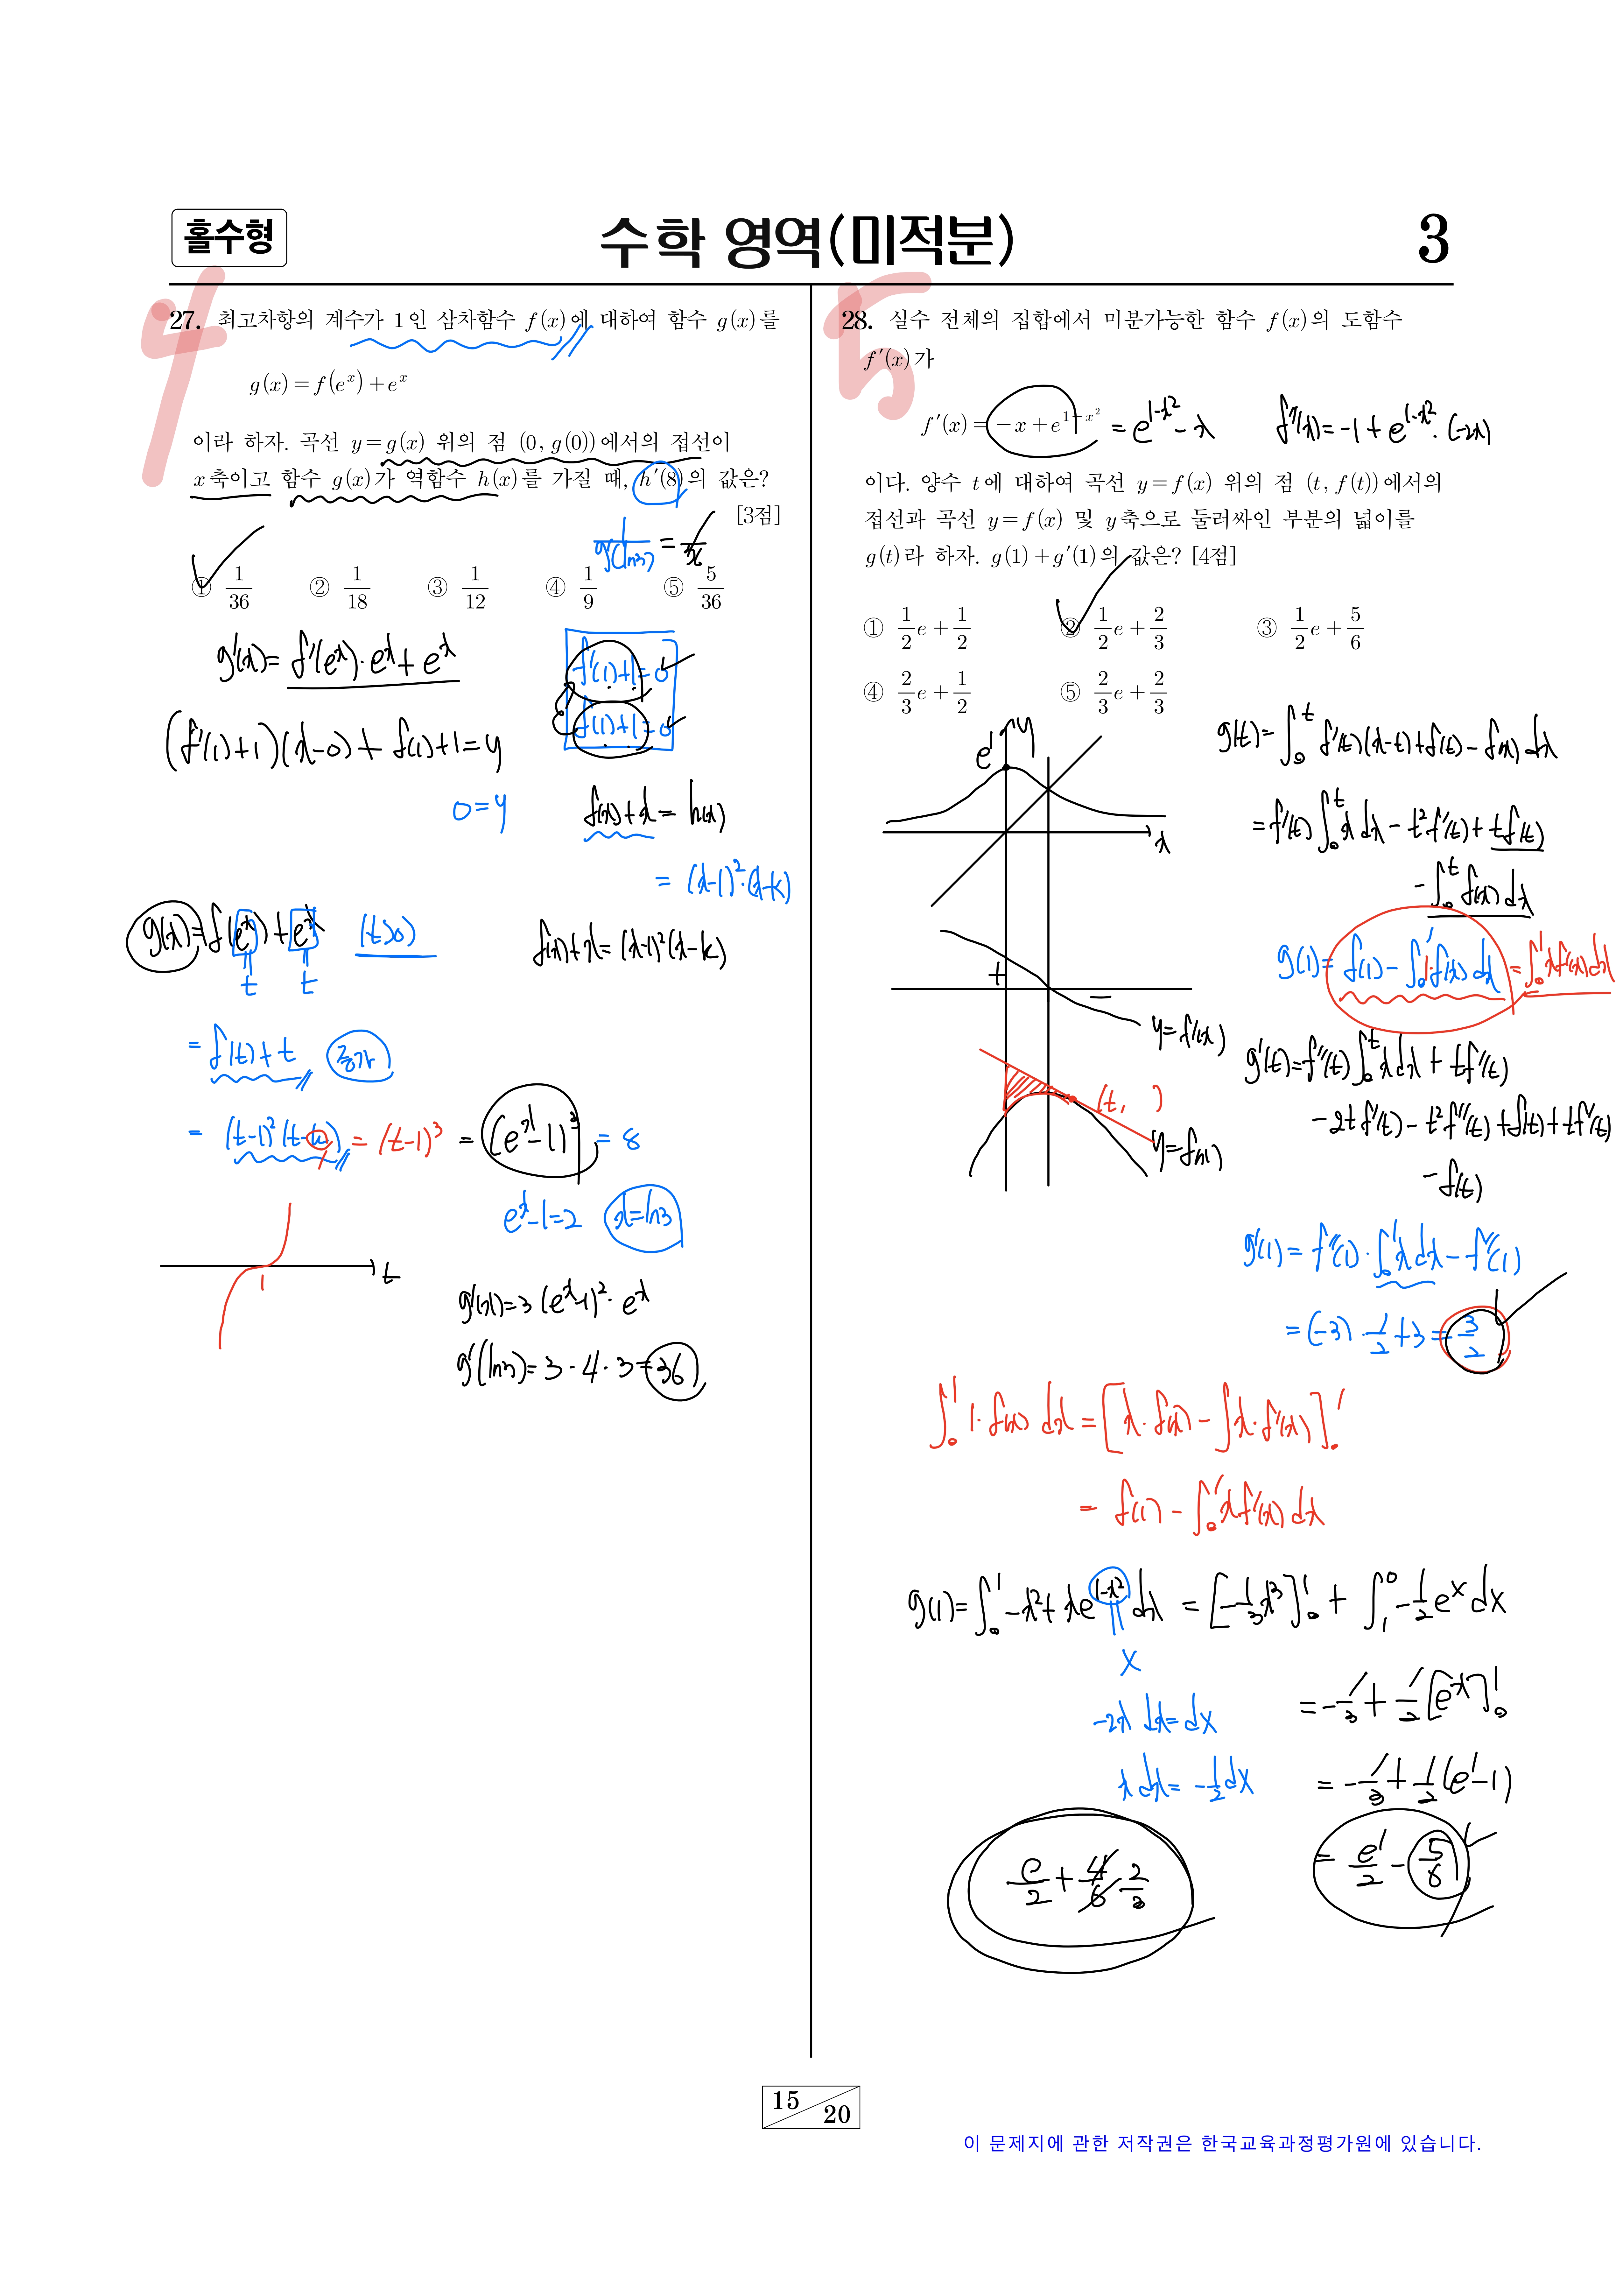 홀수형
수학 영역(미적분)
3
4
27. 최고차항의 계수가 1인 삼차함수 f(x)에 대하여 함수 g(x)를
g(x)=f(e^x)+e^x
이라 하자. 곡선 y=g(x) 위의 점 (0, g(0))에서의 접선이
x축이고 함수 g(x)가 역함수 h(x)를 가질 때, h′(8)의 값은?
[3점]
1/g′(ln3) = 1/36
① 1/36 ② 1/18 ③ 1/12 ④ 1/9 ⑤ 5/36
g′(x)= f′(e^x)·e^x+e^x
f′(1)+1=0
f(1)+1=0
(f′(1)+1)(x-0)+f(1)+1=y
0=y
f(x)+x=h(x)
=(x-1)²·(x-k)
g(x)=f(e^x)+e^x (t>0)
t t
f(x)+x=(x-1)²(x-k)
=f(t)+t 증가
=(t-1)²(t-k)=(t-1)³=(e^x-1)³=8
1
e^x-1=2 x=ln3
1 t
g′(x)=3(e^x-1)²·e^x
g′(ln3)=3·4·3=36
5
28. 실수 전체의 집합에서 미분가능한 함수 f(x)의 도함수
f′(x)가
f′(x)=-x+e^{1-x²} =e^{1-x²}-x f″(x)=-1+e^{1-x²}·(-2x)
이다. 양수 t에 대하여 곡선 y=f(x) 위의 점 (t, f(t))에서의
접선과 곡선 y=f(x) 및 y축으로 둘러싸인 부분의 넓이를
g(t)라 하자. g(1)+g′(1)의 값은? [4점]
① 1/2 e+1/2 ② 1/2 e+2/3 ③ 1/2 e+5/6
④ 2/3 e+1/2 ⑤ 2/3 e+2/3
e y
x
g(t)=∫₀^t f′(t)(x-t)+f(t)-f(x) dx
=f′(t)∫₀^t x dx-t²f′(t)+tf(t)
-∫₀^t f(x)dx
+ -
y=f′(x)
g(1)=f(1)-∫₀¹1·f(x)dx=∫₀¹xf′(x)dx
(t, )
y=f(x)
g′(t)=f″(t)∫₀^t x dx+tf′(t)
-2tf′(t)-t²f″(t)+f(t)+tf′(t)
-f(t)
g′(1)=f″(1)·∫₀¹x dx-f″(1)
=(-3)·1/2+3=3/2
∫₀¹1·f(x)dx=[x·f(x)-∫x·f′(x)]₀¹
=f(1)-∫₀¹xf′(x)dx
g(1)=∫₀¹-x²+xe^{1-x²}dx=[-1/3x³]₀¹+∫₁⁰-1/2e^X dX
X
-2x dx=dX
x dx=-1/2dX
=-1/3+1/2[e^X]₀¹
=-1/3+1/2(e-1)
=e/2-5/6
e/2+4/6 2/3
15
20
이 문제지에 관한 저작권은 한국교육과정평가원에 있습니다.